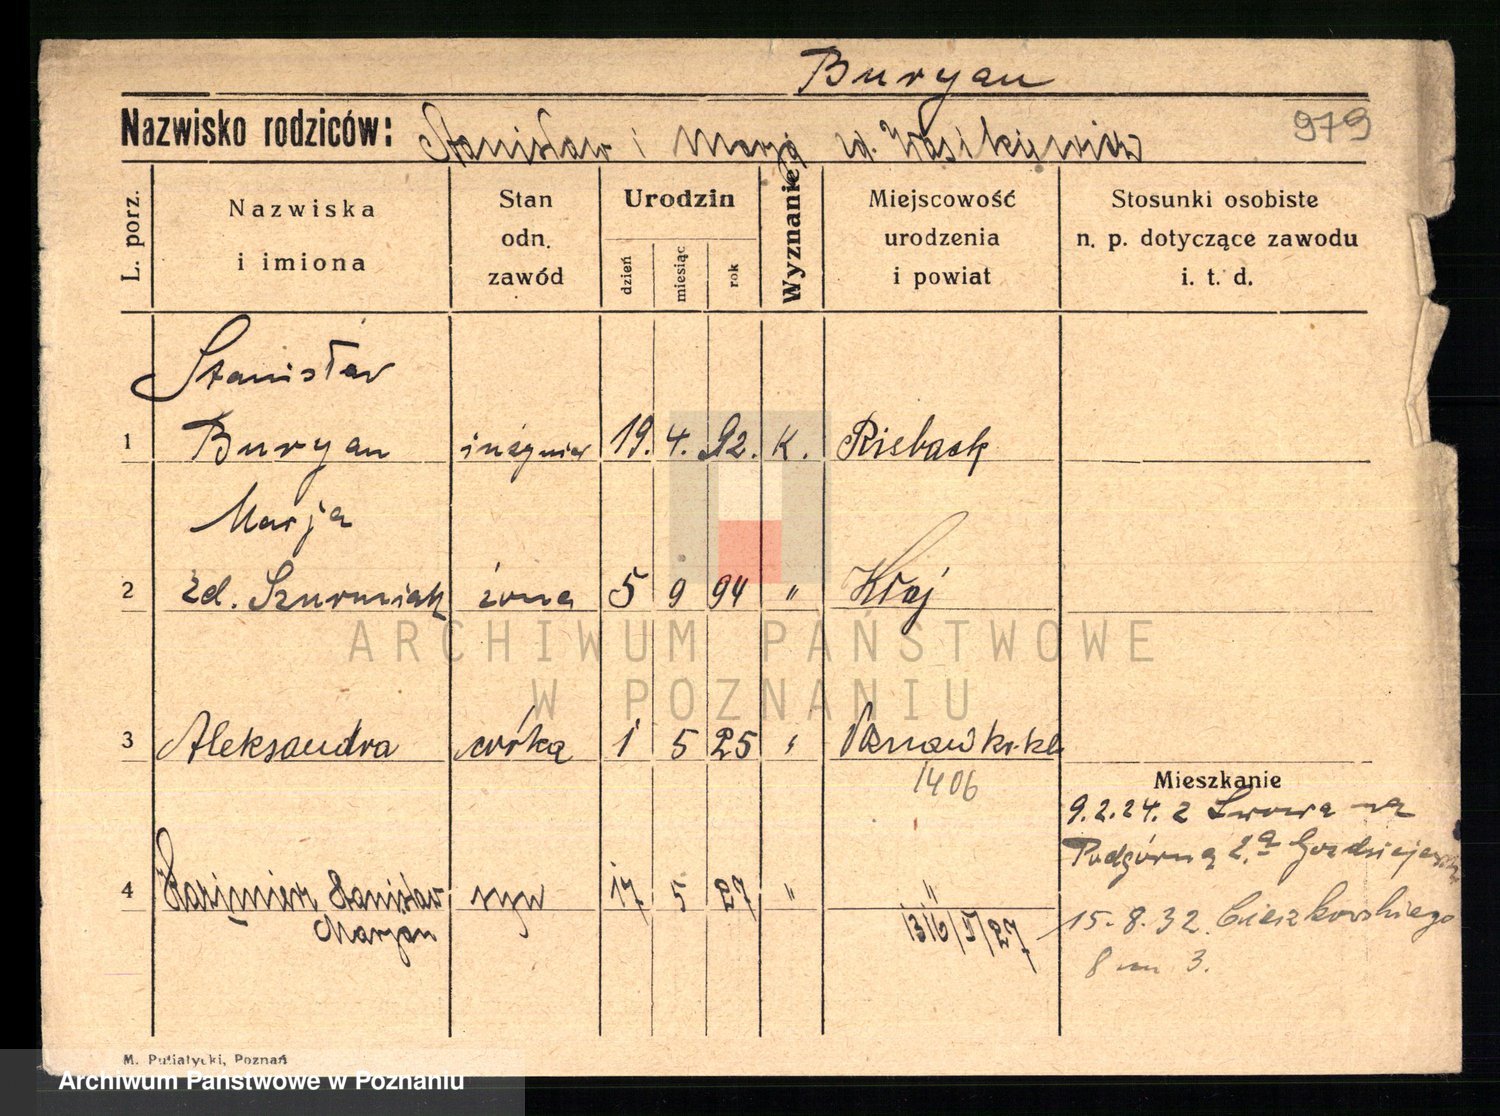 Buryan
Nazwisko rodziców: Stanisław i Marja zd. Wasikiewicz
979
L. porz.
Nazwiska
i imiona
Stan
odn.
zawód
Urodzin
dzień
miesiąc
rok
Wyznanie
Miejscowość
urodzenia
i powiat
Stosunki osobiste
n. p. dotyczące zawodu
i. t. d.
Stanisław
1 Buryan inżynier 19. 4. 92. K.
Marja
2 zd. Szurmiak żona 5 9 94 " Kłaj
3 Aleksandra córka 1 5 25 "
1406
Mieszkanie
9.2.24. z Lwowa na
Podgórną
4 Kazimierz Stanisław syn 17 5 27 " "
Marjan
15.8.32. Cieszkowskiego
8 m 3.
M. Putiatycki, Poznań
ARCHIWUM PAŃSTWOWE
W POZNANIU
Archiwum Państwowe w Poznaniu